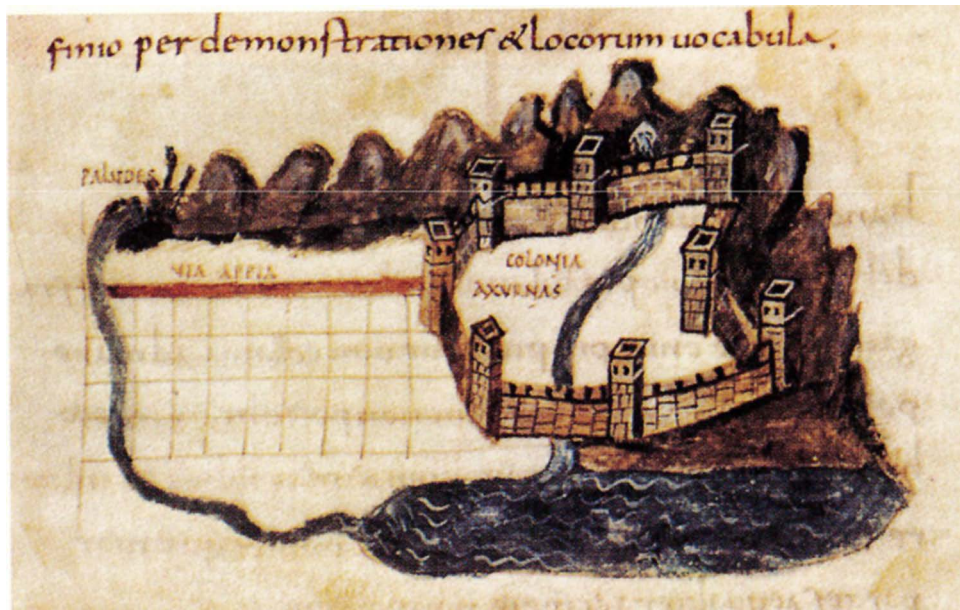 finio per demonstrationes & locorum uocabula.
PALUDES
VIA APPIA
COLONIA
AXURNAS